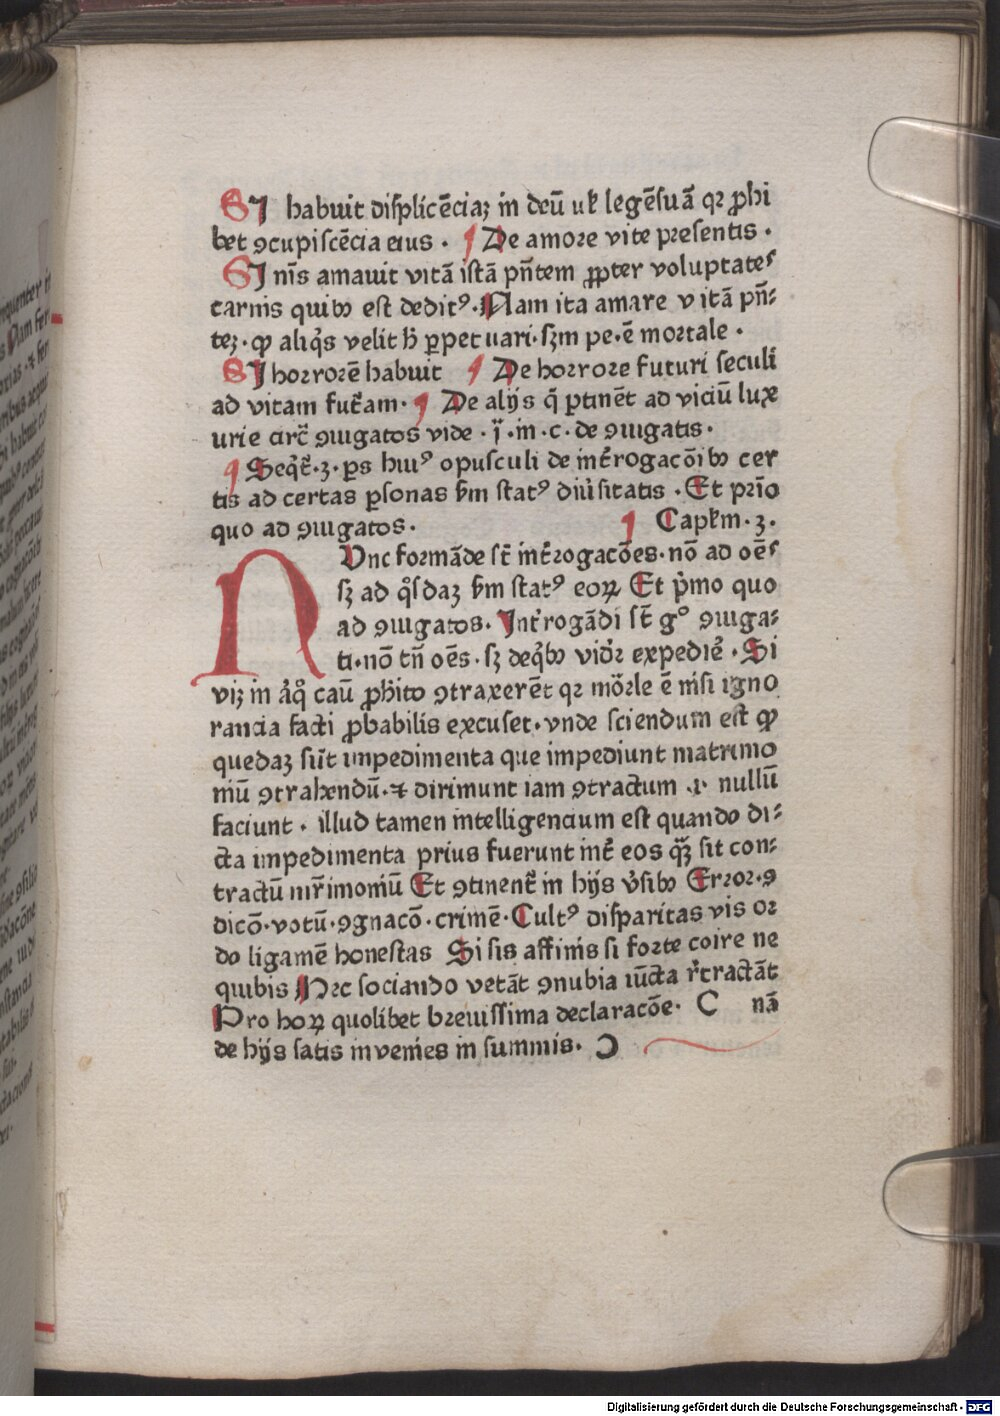 SI habuit displicēciaꝫ in deū ul̵ legēsuā qꝛ ꝓhi
bet ꝯcupiscēcia eius . ¶ De amore vite presentis .
SI nīs amauit vitā istā pn̄tem ꝓpter voluptates
carnis quibꝰ est deditꝰ. Nam ita amare vitā pn̄-
teꝫ. ꝙ aliq̇s velit h̄ ꝑpetuari. sꝫm pe. ē mortale .
SI horrorē habuit ¶ De horrore futuri seculi
ad vitam fut̄am. ¶ De alijs q̄ ꝑtinēt ad viciū luxe
urie circ̄ ꝯiugatos vide . j̄ . in . c . de ꝯiugatis .
¶ Seqt̄ . 3 . ꝑs huiꝰ opusculi de int̄rogacōibꝰ cer
tis ad certas ꝑsonas ẜm statꝰ diūsitatis . Et prīo
quo ad ꝯiugatos . ¶ Capl̵m . 3 .
NUnc formāde st̄ int̄rogacōes. nō ad oēs
sꝫ ad q̇sdaꝫ ẜm statꝰ eoꝝ Et ṗmo quo
ad ꝯiugatos. Int̄rogādi st̄ gͦ ꝯiuga-
ti. nō tn̄ oēs. sꝫ deq̇bꝰ vidr̄ expediē . Si
viꝫ in aq̇ caū ꝓhito ꝯtraxerēt qꝛ mōrle ē nisi igno
rancia facti ꝓbabilis excuset. vnde sciendum est ꝙ
quedaꝫ sūt impedimenta que impediunt matrimo
niū ꝯtrahendū. ⁊ dirimunt iam ꝯtractum .i. nullū
faciunt . illud tamen intelligendum est quando di-
cta impedimenta prius fuerunt int̄ eos qꝫ sit con-
tractū mr̄imoniū Et ꝯtinent̄ in hijs v̄sibꝰ Error. ꝯ
dicō. votū. ꝯgnacō. crimē. Cultꝰ disparitas vis or
do ligamē honestas Si sis affinis si forte coire ne
quibis Hec sociando vetāt ꝯnubia iūcta r̄tractāt
Pro hoꝝ quolibet breuissima declaracōe. C nā
de hijs satis invenies in summis. Ɔ
Digitalisierung gefördert durch die Deutsche Forschungsgemeinschaft - DFG